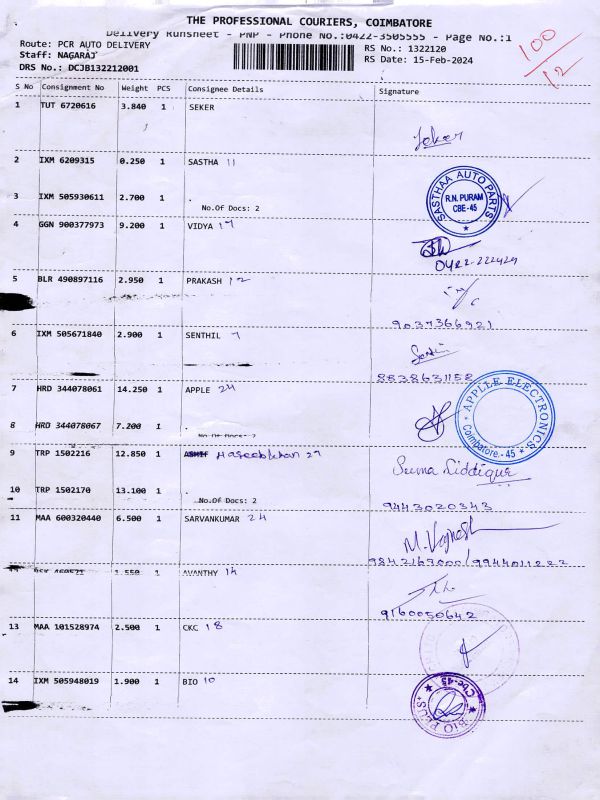 THE PROFESSIONAL COURIERS, COIMBATORE
Delivery Runsheet - PNP - Phone No.:0422-3505555 - Page No.:1
Route: PCR AUTO DELIVERY
Staff: NAGARAJ
DRS No.: DCJB132212001
RS No.: 1322120
RS Date: 15-Feb-2024
100
12
S No Consignment No Weight PCS Consignee Details Signature
1 TUT 6720616 3.840 1 SEKER
Seker
2 IXM 6209315 0.250 1 SASTHA 11
SASTHAA AUTO PARTS
R.N. PURAM
CBE-45
3 IXM 505930611 2.700 1 .
No.Of Docs: 2
4 GGN 900377973 9.200 1 VIDYA 17
0422-222424
5 BLR 490897116 2.950 1 PRAKASH 12
9037366921
6 IXM 505671840 2.900 1 SENTHIL 7
8838631158
7 HRD 344078061 14.250 1 APPLE 24
APPLLE ELECTRONICS
Coimbatore.- 45
8 HRD 344078067 7.200 1 .
No.Of Docs: 2
9 TRP 1502216 12.850 1 ASHIF Haseebkhan 27
Suma Siddique
10 TRP 1502170 13.100 1 .
No.Of Docs: 2
9443020343
11 MAA 600320440 6.500 1 SARVANKUMAR 24
M. Vignesh
9842169000/9944011222
1.550 1 AVANTHY 14
9160050642
13 MAA 101528974 2.500 1 CKC 18
14 IXM 505948019 1.900 1 BIO 10
BIO PLUS
Cbe-45